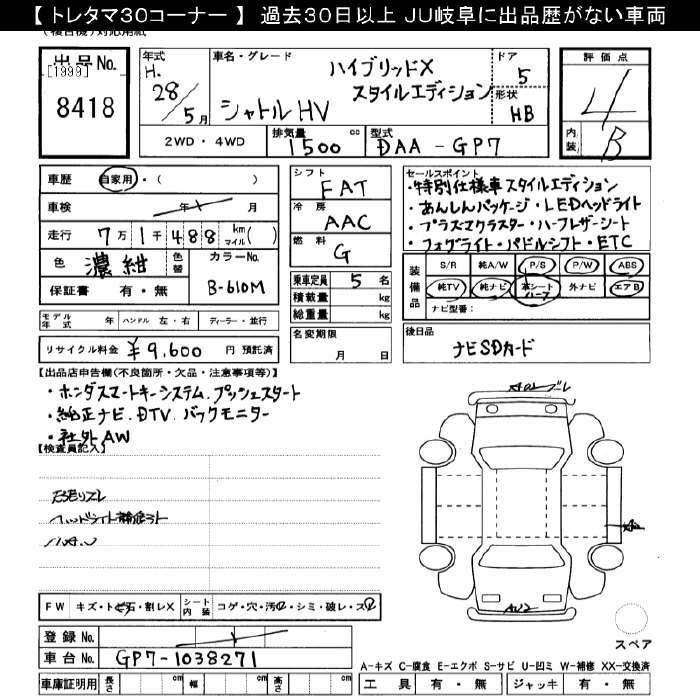 【 トレタマ30コーナー 】 過去30日以上 JU岐阜に出品歴がない車両
出品No.
[1999]
8418
年式
H.
28/5月
車名・グレード
ハイブリッドX
スタイルエディション
シャトルHV
ドア
5
形状
HB
評価点
4
内装
B
2WD・4WD
排気量
1500 cc
型式
DAA-GP7
車歴 自家用・( )
車検 年 月
走行 7万1千488 km マイル( )
色 濃紺 色替
カラーNo.
B-610M
保証書 有・無
シフト
FAT
冷房
AAC
燃料
G
乗車定員 5 名
積載量 kg
総重量 kg
セールスポイント
・特別仕様車スタイルエディション
・あんしんパッケージ・LEDヘッドライト
・プラズマクラスター・ハーフレザーシート
・フォグライト・パドルシフト・ETC
装備品
S/R 純A/W P/S P/W ABS
純TV 純ナビ 革シート ハーフ 外ナビ エアB
ナビ型番:
モデル年式 年 ハンドル 左・右 ディーラー・並行
リサイクル料金 ¥9,600 円 預託済
名変期限
月 日
後日品
ナビSDカード
【出品店申告欄(不良箇所・欠品・注意事項等)】
・ホンダスマートキーシステム.プッシュスタート
・純正ナビ.DTV.バックモニター
・社外AW
【検査員記入】
FW キズ・トビ石・割レX シート内装 コゲ・穴・汚レ・シミ・破レ・スレ
登録No.
車台No. GP7-1038271
車庫証明用 長さ cm 幅 cm 高さ cm
スペア
A-キズ C-腐食 E-エクボ S-サビ U-凹ミ W-補修 XX-交換済
工具 有・無 ジャッキ 有・無